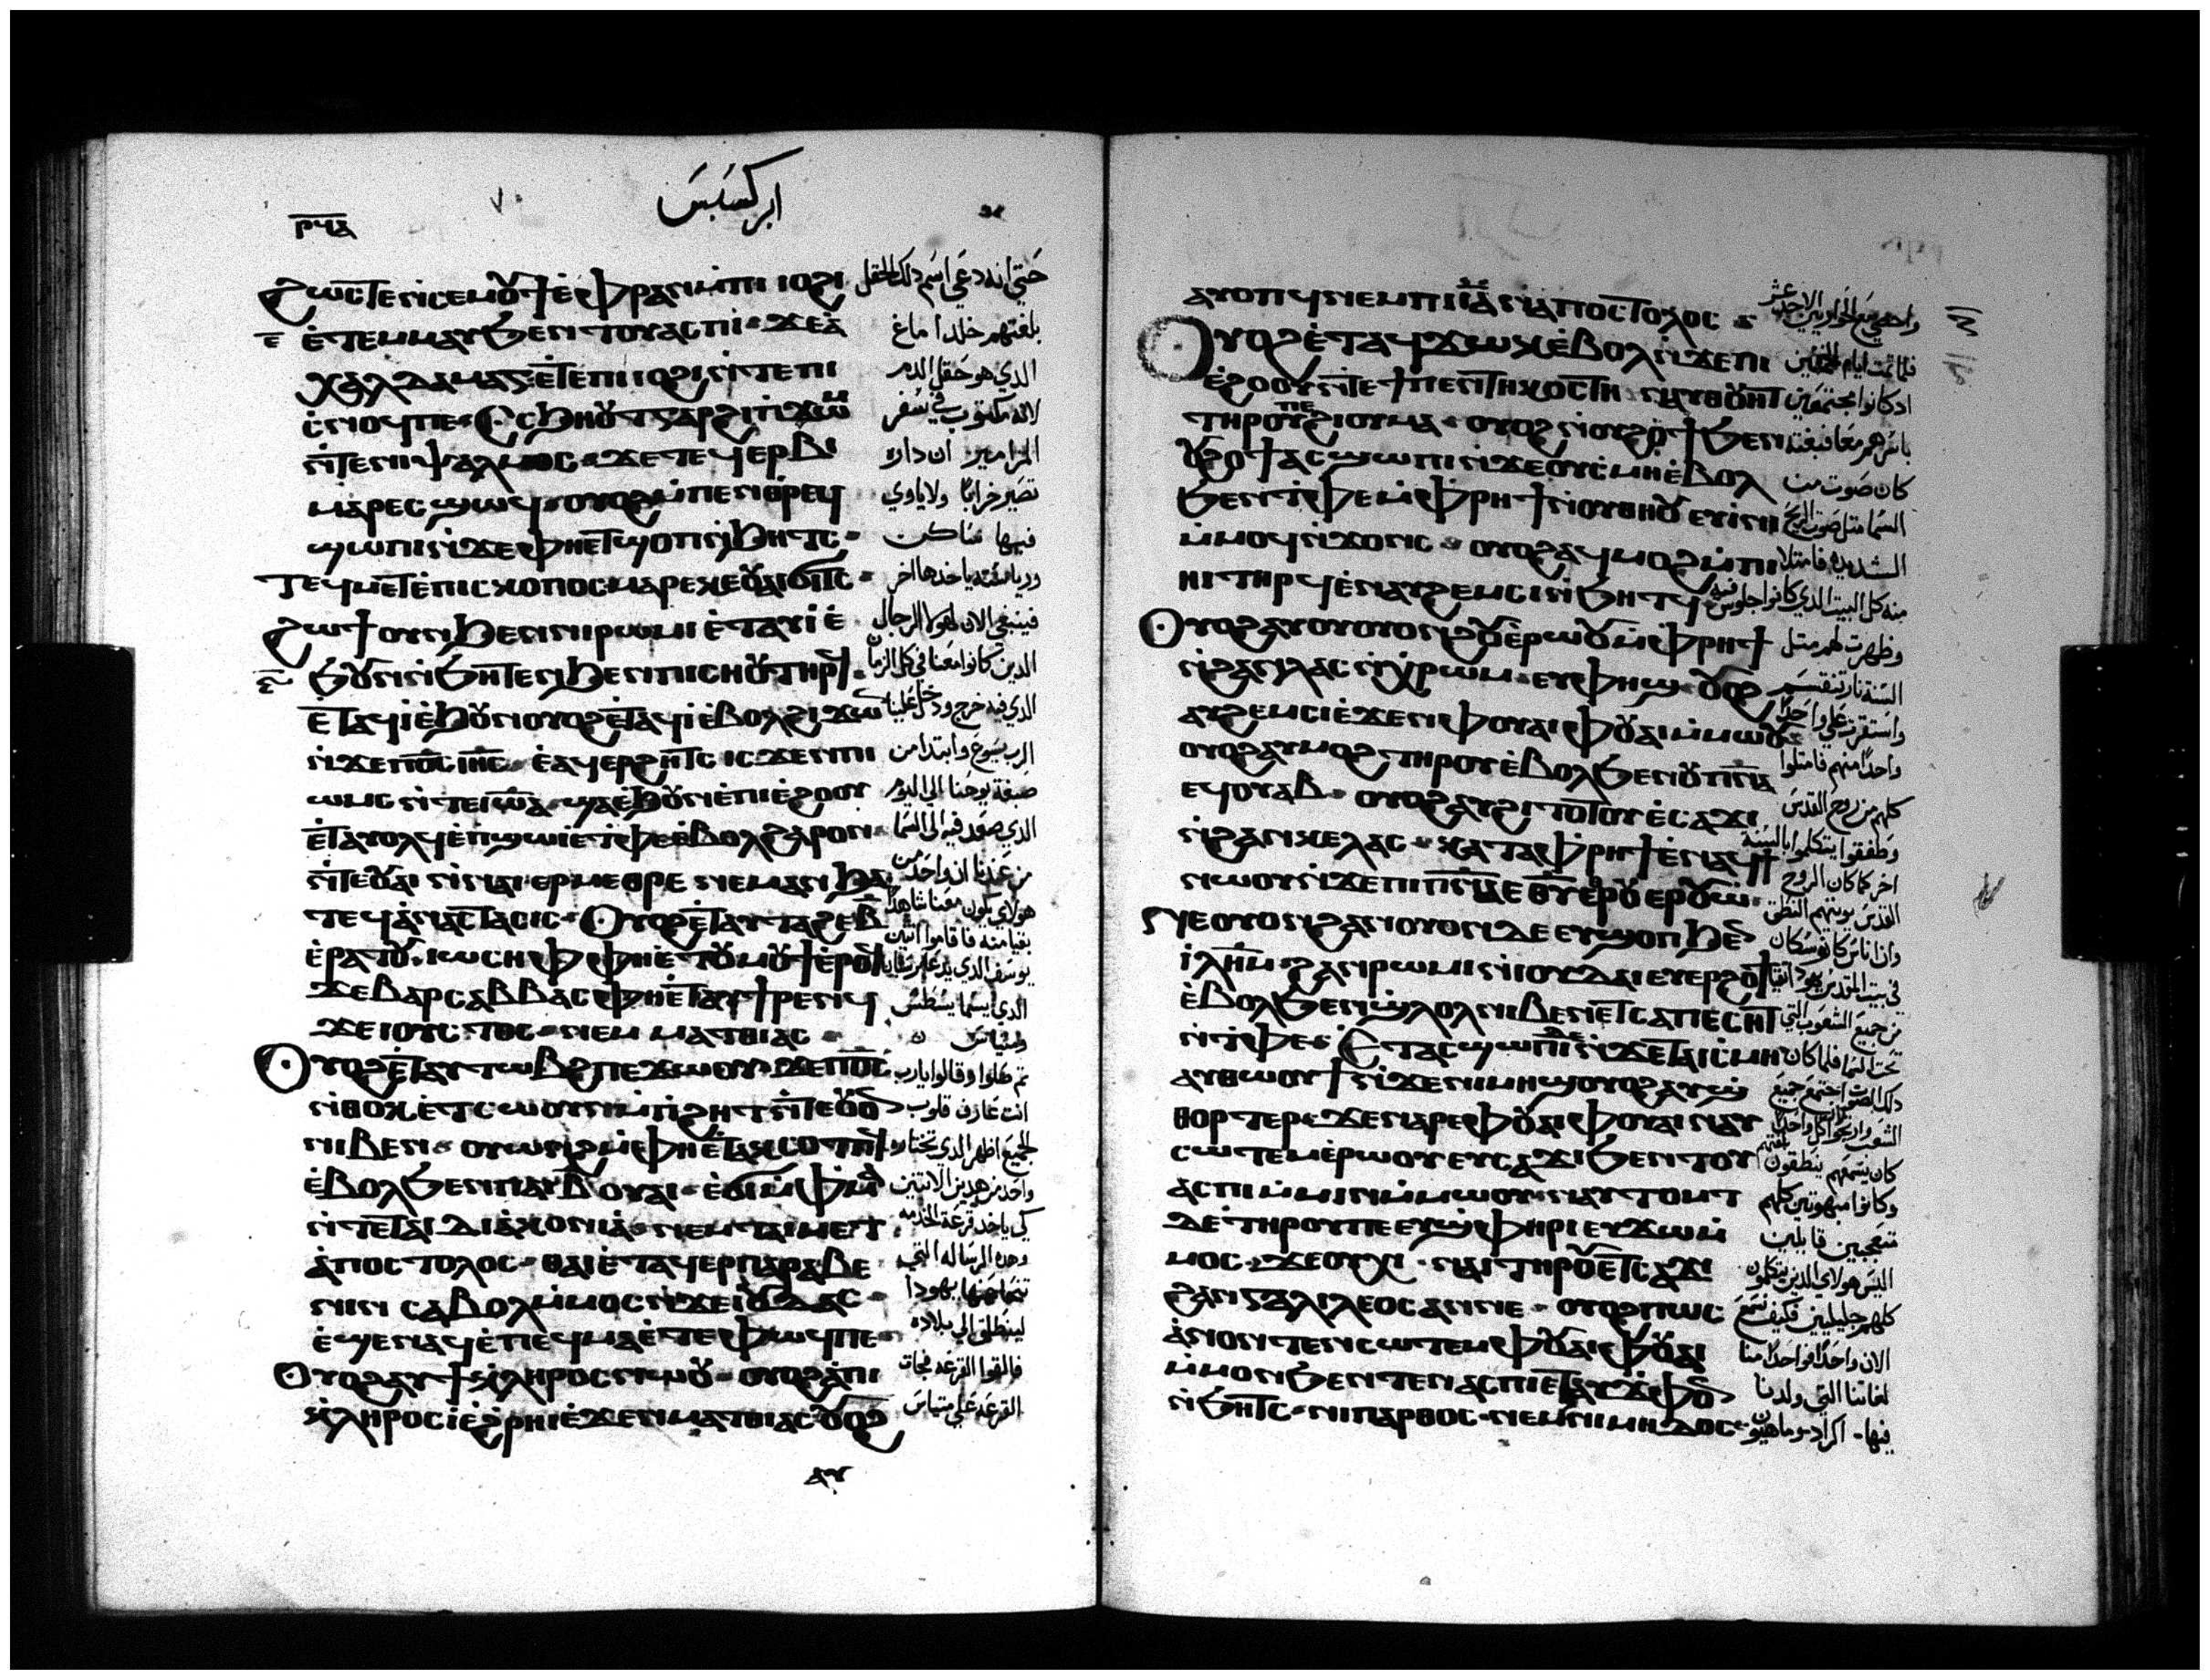 ابركسيس
ⲣϥⲁ
ϩⲱⲥⲧⲉ ⲛⲥⲉⲙⲟⲩϯ ⲉⲫⲣⲁⲛ ⲙⲡⲓ ⲓⲟϩⲓ
ⲉⲧⲉⲙⲙⲁⲩ ϧⲉⲛ ⲧⲟⲩⲁⲥⲡⲓ ϫⲉ ⲁ
ⲭⲁⲗⲇⲁⲙⲁⲝ ⲉⲧⲉ ⲡⲓ ⲓⲟϩⲓ ⲛⲧⲉ ⲡⲓ
ⲥⲛⲟϥ ⲡⲉ ⲥϧⲏⲟⲩⲧ ⲅⲁⲣ ϩⲓ ⲡϫⲱⲙ
ⲛⲧⲉ ⲛⲓⲯⲁⲗⲙⲟⲥ ϫⲉ ⲧⲉϥⲉⲣⲃⲓ
ⲙⲁⲣⲉⲥϣⲱϥ ⲟⲩⲟϩ ⲙⲡⲉⲛⲑⲣⲉϥ
ϣⲱⲡⲓ ⲛϫⲉ ⲫⲏⲉⲧϣⲟⲡ ⲛϧⲏⲧⲥ
ⲧⲉϥⲙⲉⲧⲉⲡⲓⲥⲕⲟⲡⲟⲥ ⲙⲁⲣⲉ ⲕⲉⲟⲩⲁⲓ ϭⲓⲧⲥ
ϩⲱϯ ⲟⲩⲛ ϧⲉⲛ ⲛⲓⲣⲱⲙⲓ ⲉⲧⲁⲩⲓ ⲉ
ϧⲟⲩⲛ ⲛϧⲏⲧⲉⲛ ϧⲉⲛ ⲡⲓⲥⲏⲟⲩ ⲧⲏⲣϥ
ⲉⲧⲁϥⲓ ⲉϧⲟⲩⲛ ⲟⲩⲟϩ ⲉⲧⲁϥⲓ ⲉⲃⲟⲗ ϩⲓϫⲱⲛ
ⲛϫⲉ ⲡϭⲟⲓⲥ ⲓⲏⲥ ⲉⲁϥⲉⲣϩⲏⲧⲥ ⲓⲥϫⲉⲛ ⲡⲓ
ⲱⲙⲥ ⲛⲧⲉ ⲓⲱⲁ ϣⲁ ⲉϧⲟⲩⲛ ⲉⲡⲓⲉϩⲟⲟⲩ
ⲉⲧⲁⲩⲟⲗϥ ⲉⲡϣⲱⲓ ⲉⲧⲫⲉ ⲉⲃⲟⲗ ϩⲁⲣⲟⲛ
ⲛⲧⲉ ⲟⲩⲁⲓ ⲛⲛⲁⲓ ⲉⲣⲙⲉⲑⲣⲉ ⲛⲉⲙⲁⲛ ϧⲁ
ⲧⲉϥⲁⲛⲁⲥⲧⲁⲥⲓⲥ ⲟⲩⲟϩ ⲉⲧⲁⲩⲧⲁϩⲉ ⲃ
ⲉⲣⲁⲧⲟⲩ ⲓⲱⲥⲏⲫ ⲫⲏⲉⲧⲟⲩⲙⲟⲩϯ ⲉⲣⲟϥ
ϫⲉ ⲃⲁⲣⲥⲁⲃⲃⲁⲥ ⲫⲏⲉⲧⲁⲩϯⲣⲉⲛϥ
ϫⲉ ⲓⲟⲩⲥⲧⲟⲥ ⲛⲉⲙ ⲙⲁⲧⲑⲓⲁⲥ
ⲟⲩⲟϩ ⲉⲧⲁⲩⲧⲱⲃϩ ⲡⲉϫⲱⲟⲩ ϫⲉ ⲡϭⲟⲓⲥ
ⲛⲑⲟⲕ ⲉⲧⲥⲱⲟⲩⲛ ⲛⲛⲓϩⲏⲧ ⲛⲧⲉ ⲟⲩⲟⲛ
ⲛⲓⲃⲉⲛ ⲟⲩⲱⲛϩ ⲙⲫⲏⲉⲧⲁⲕⲥⲟⲧⲡϥ
ⲉⲃⲟⲗ ϧⲉⲛ ⲡⲁⲓ ⲃ ⲟⲩⲁⲓ ⲉϭⲓ ⲙⲫⲙⲁ
ⲛⲧⲉ ⲧⲁⲓ ⲇⲓⲁⲕⲟⲛⲓⲁ ⲛⲉⲙ ⲧⲁⲓⲙⲉⲧ
ⲁⲡⲟⲥⲧⲟⲗⲟⲥ ⲑⲁⲓ ⲉⲧⲁϥⲉⲣⲡⲁⲣⲁⲃⲉ
ⲛⲓⲛ ⲥⲁⲃⲟⲗ ⲙⲙⲟⲥ ⲛϫⲉ ⲓⲟⲩⲇⲁⲥ
ⲉϣⲉⲛⲁϥ ⲉⲡⲉϥⲙⲁ ⲉⲧⲉ ⲫⲱϥ ⲡⲉ
ⲟⲩⲟϩ ⲁⲩϯ ⲕⲗⲏⲣⲟⲥ ⲛⲱⲟⲩ ⲟⲩⲟϩ ⲁ ⲡⲓ
ⲕⲗⲏⲣⲟⲥ ⲓ ⲉϩⲣⲏⲓ ⲉϫⲉⲛ ⲙⲁⲧⲑⲓⲁⲥ ⲟⲩⲟϩ
ⲁⲩ
حتي انه دعي اسم ذلك الحقل
بلغتهم خلدا ماغ
الذي هو حقل الدم
لانه مكتوب في سفر
المزامير ان داره
تصير خرابا ولا ياوي
فيها ساكن
ورياسته ياخذها اخر
فينبغي الان لهولا الرجال
الذين كانوا معنا في كل الزمان
الذي فيه خرج ودخل علينا
الرب يسوع وابتدا من
صبغة يوحنا الي اليوم
الذي صعد فيه الي السما
من عندنا ان واحد من
هولاي يكون معنا شاهدا
بقيامته فاقاموا اثنين
الذي يسما يسطس
ثم صلوا وقالوا يارب
انت عارف قلوب
الجميع اظهر الذي تختاره
واحد من هذين الاثنين
كي ياخذ قرعة الخدمه
وهذه الرساله التي
تنحا عنها يهودا
لينطلق الي بلاده
فالقوا القرعه فجات
القرعه علي متياس
ⲁⲩⲟⲡϥ ⲛⲉⲙ ⲡⲓ ⲓⲁ ⲛⲁⲡⲟⲥⲧⲟⲗⲟⲥ
ⲟⲩⲟϩ ⲉⲧⲁϥϫⲱⲕ ⲉⲃⲟⲗ ⲛϫⲉ ⲡⲓ
ⲉϩⲟⲟⲩ ⲛⲧⲉ ϯⲡⲉⲛⲧⲏⲕⲟⲥⲧⲏ ⲛⲁⲩⲑⲟⲩⲏⲧ
ⲧⲏⲣⲟⲩ ⲡⲉ ϩⲓ ⲟⲩⲙⲁ ⲟⲩⲟϩ ⲛⲟⲩϩⲟϯ ϧⲉⲛ
ⲟⲩϩⲟϯ ⲁⲥϣⲱⲡⲓ ⲛϫⲉ ⲟⲩⲥⲙⲏ ⲉⲃⲟⲗ
ϧⲉⲛ ⲧⲫⲉ ⲙⲫⲣⲏϯ ⲛⲟⲩⲑⲏⲟⲩ ⲉⲩⲓⲛⲓ
ⲙⲙⲟϥ ⲛϫⲟⲛⲥ ⲟⲩⲟϩ ⲁϥⲙⲟϩ ⲙⲡⲓ
ⲏⲓ ⲧⲏⲣϥ ⲉⲛⲁⲩϩⲉⲙⲥⲓ ⲛϧⲏⲧϥ
ⲟⲩⲟϩ ⲁⲩⲟⲩⲟⲛϩⲟⲩ ⲉⲣⲱⲟⲩ ⲙⲫⲣⲏϯ
ⲛϩⲁⲛⲗⲁⲥ ⲛⲭⲣⲱⲙ ⲉⲩⲫⲏϣ ⲟⲩⲟϩ
ⲁⲩϩⲉⲙⲥⲓ ⲉϫⲉⲛ ⲫⲟⲩⲁⲓ ⲫⲟⲩⲁⲓ ⲙⲙⲱⲟⲩ
ⲟⲩⲟϩ ⲁⲩⲙⲟϩ ⲧⲏⲣⲟⲩ ⲉⲃⲟⲗ ϧⲉⲛ ⲟⲩⲡⲛⲁ
ⲉϥⲟⲩⲁⲃ ⲟⲩⲟϩ ⲁⲩϩⲓⲧⲟⲧⲟⲩ ⲉⲥⲁϫⲓ
ⲛϩⲁⲛⲕⲉⲗⲁⲥ ⲕⲁⲧⲁ ⲫⲣⲏϯ ⲉⲛⲁϥϯ
ⲛⲱⲟⲩ ⲛϫⲉ ⲡⲓⲡⲛⲁ
ⲛⲉ ⲟⲩⲟⲛ ϩⲁⲛⲟⲩⲟⲛ ⲇⲉ ⲉⲩϣⲟⲡ ϧⲉⲛ
ⲓⲗⲏⲙ ϩⲁⲛⲣⲱⲙⲓ ⲛⲓⲟⲩⲇⲁⲓ ⲉⲩⲉⲣϩⲟϯ
ⲉⲃⲟⲗ ϧⲉⲛ ϣⲗⲟⲗ ⲛⲓⲃⲉⲛ ⲉⲧⲥⲁⲡⲉⲥⲏⲧ
ⲛⲧⲫⲉ ⲉⲧⲁⲥϣⲱⲡⲓ ⲇⲉ ⲛϫⲉ ⲧⲁⲓⲥⲙⲏ
ⲁⲩⲑⲱⲟⲩϯ ⲛϫⲉ ⲛⲓⲙⲏϣ ⲟⲩⲟϩ ⲁⲩϣ
ⲑⲟⲣⲧⲉⲣ ϫⲉ ⲛⲁⲣⲉ ⲫⲟⲩⲁⲓ ⲫⲟⲩⲁⲓ ⲛⲁⲩ
ⲥⲱⲧⲉⲙ ⲉⲣⲱⲟⲩ ⲉⲩⲥⲁϫⲓ ϧⲉⲛ ⲧⲟⲩ
ⲁⲥⲡⲓ ⲙⲙⲓⲛ ⲙⲙⲱⲟⲩ ⲛⲁⲩⲧⲟⲙⲧ
ⲇⲉ ⲧⲏⲣⲟⲩ ⲡⲉ ⲉⲩⲉⲣϣⲫⲏⲣⲓ ⲉⲩϫⲱⲙ
ⲙⲟⲥ ϫⲉ ⲟⲩⲭⲓ ⲛⲁⲓ ⲧⲏⲣⲟⲩ ⲉⲧⲥⲁϫⲓ
ϩⲁⲛⲅⲁⲗⲓⲗⲉⲟⲥ ⲁⲛ ⲛⲉ ⲟⲩⲟϩ ⲡⲱⲥ
ⲁⲛⲟⲛ ⲧⲉⲛⲥⲱⲧⲉⲙ ⲫⲟⲩⲁⲓ ⲫⲟⲩⲁⲓ
ⲙⲙⲟⲛ ϧⲉⲛ ⲧⲉⲛⲁⲥⲡⲓ ⲉⲧⲁⲩϫⲫⲟⲛ
ⲛϧⲏⲧⲥ ⲛⲓⲡⲁⲣⲑⲟⲥ ⲛⲉⲙ ⲛⲓⲙⲏⲇⲟⲥ
واحصي مع الحواريين الاحد عشر
فلما تمت ايام الخمسين
اذ كانوا مجتمعين
باسرهم معا فبغته
كان صوت من
السما مثل صوت الريح
الشديده فامتلا
منه كل البيت الذي كانوا جلوس فيه
وظهرت لهم مثل
السنة نار تنقسم
واستقرت علي واحدا
واحدا منهم فامتلوا
كلهم من روح القدس
وطفقوا يتكلموا بالسنة
اخر كما كان الروح
القدس يوتيهم النطق
وان ناس كانوا سكان
في بيت المقدس يهود اتقيا
من جميع الشعوب التي
تحت السما فلما كان
ذلك الصوت اجتمع جميع
كان يسمعهم ينطقون بلغتهم
وكانوا مبهوتين كلهم
متعجبين قايلين
اليس هولاي الذين يتكلمون
كلهم جليليين فكيف نسمع
الان واحدا فواحدا منا
لغاتنا التي ولدنا
فيها